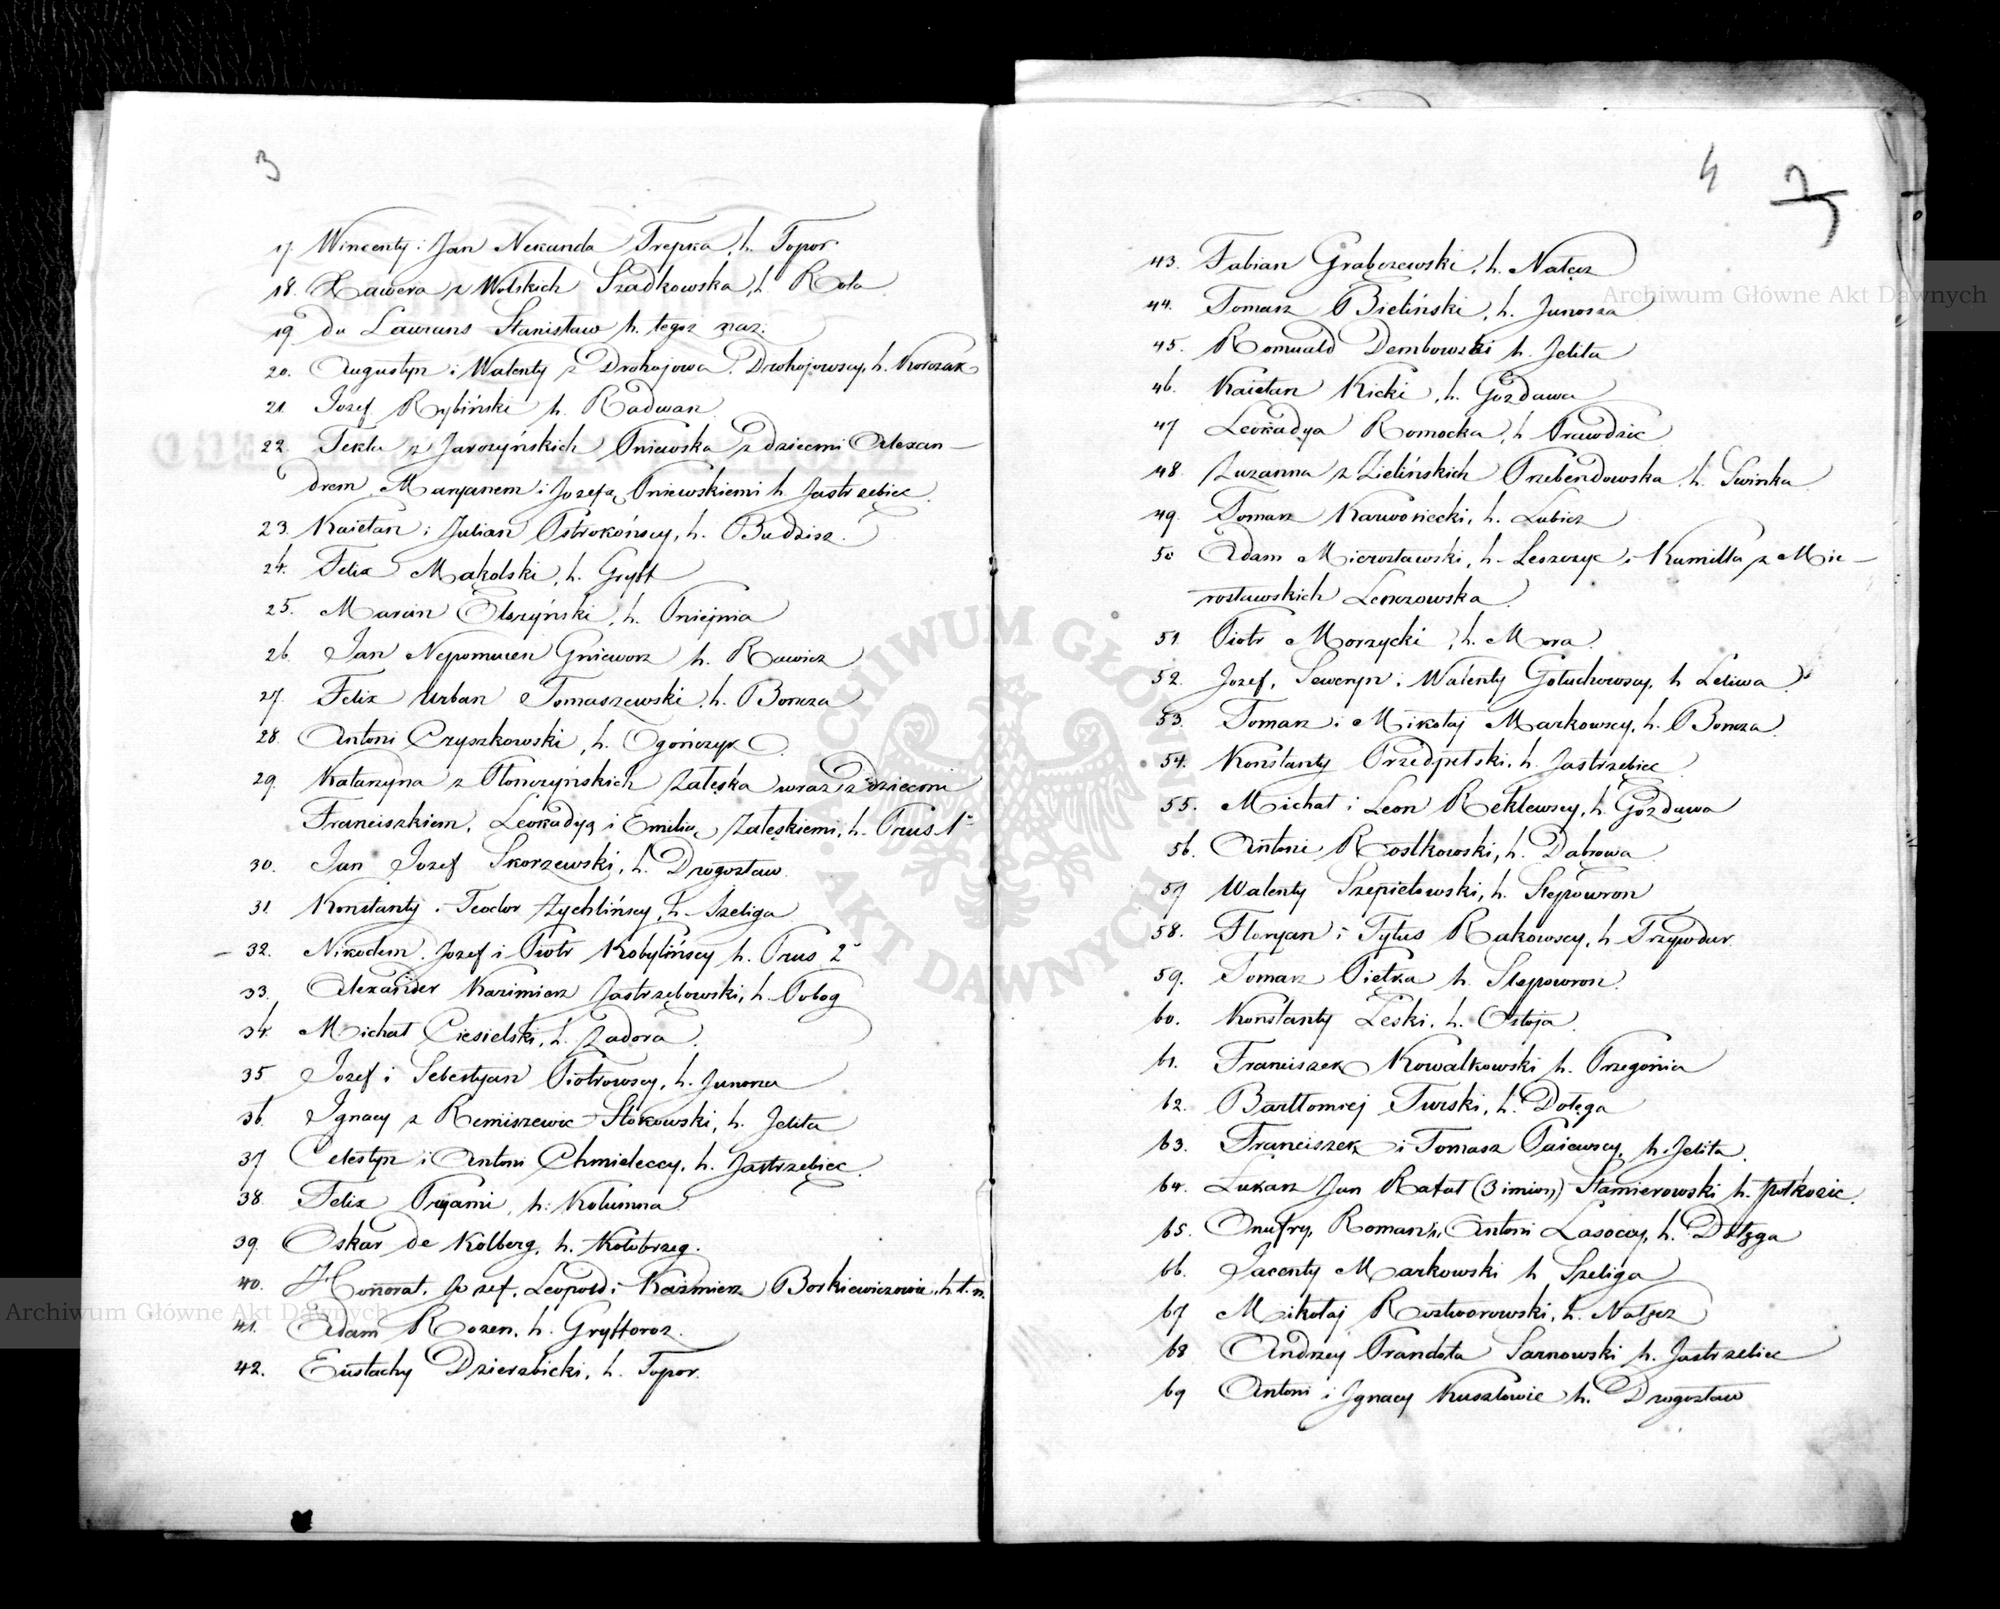 3
17. Wincenty i Jan Nekanda Trepka, h. Topor
18. Xawera z Wolskich Szadkowska, h. Rola
19 du Laurans Stanisław h. tegoż naz:
20. Augustyn i Walenty z Drohojowa Drohojowscy, h. Korczak
21. Jozef Rybiński h. Radwan
22. Tekla z Jaroczyńskich Pniewska z dziecmi Alexan-
drem, Maryanem i Jozefą Pniewskiemi h. Jastrzębiec
23. Kaietan i Julian Ostrokońscy, h. Budzisz.
24. Felix Makolski, h. Gryff
25. Marcin Olszyński, h. Pniejnia
26. Jan Nepomucen Gniewosz h. Rawicz
27. Felix Urban Tomaszewski, h. Boncza
28. Antoni Czyszkowski, h. Ogończyk
29. Katarzyna z Płonczyńskich Załęska wraz z dziecmi
Franciszkiem, Leokadyą i Emilią Załęskiemi, h. Prus 1º
30. Jan Jozef Skorzewski, h. Drogosław
31. Konstanty i Teodor Zychlińscy, h. Szeliga
32. Nikodem, Jozef i Piotr Kobylińscy h. Prus 2º
33. Alexander Kazimierz Jastrzębowski, h. Pobog
34. Michał Ciesielski, h. Zadora.
35 Jozef i Sebestyan Piotrowscy, h. Junosza
36. Ignacy z Remiszewic Stokowski, h. Jelita
37 Celestyn i Antoni Chmieleccy, h. Jastrzębiec.
38. Felix h. Kolumna
39. Oskar de Kolberg, h. Kołobrzeg.
40. Honorat, Jozef, Leopold i Kazmierz Borkiewiczowie, h. t. n.
41. Adam Rozen, h. Gryfforoz.
42. Eustachy Dzierzbicki, h. Topor.
4
2
43. Fabian Grabczewski, h. Nałęcz
44. Tomasz Bieliński, h. Junosza
45. Romuald Dembowski h. Jelita
46. Kaietan Kicki, h. Gozdawa
47 Leokadya Romocka, h Prawdzic
48. Zuzanna z Zielińskich Przebendowska, h. Swinka
49. Tomasz Karwosiecki, h. Lubicz
50 Adam Mierosławski, h. Leszczyc i Kamilla z Mie-
rosławskich Lenczowska
51 Piotr Morzycki, h. Mora
52. Jozef, Seweryn i Walenty Gołuchowscy, h Leliwa
53. Tomasz i Mikołaj Markowscy, h. Boncza
54. Konstanty Przedpełski, h. Jastrzębiec
55. Michał i Leon Rekłewscy, h. Gozdawa
56. Antoni Rostkowski, h. Dąbrowa
57 Walenty Szepietowski, h. Slepowron
58. Floryan i Tytus Rakowscy, h Trzywdar.
59. Tomasz Piętka h. Slepowron
60. Konstanty Leski, h. Ostoja
61. Franciszek Kowalkowski h. Przegonia
62. Bartłomiej Turski, h. Dołęga
63. Franciszek i Tomasz Paiewscy, h. Jelita.
64. Łukasz Jan Rafał (3 imion) Stamierowski h. połkozic.
65. Onufry, Roman i, Antoni Lasoccy, h. Dołęga
66. Jacenty Markowski h Szeliga
67 Mikołaj Roztworowski, h. Nałęcz
68 Andrzey Prandota Sarnowski h. Jastrzebiec
69 Antoni i Ignacy Kuszlowie h. Drogosław
Archiwum Główne Akt Dawnych
Archiwum Główne Akt Dawnych
ARCHIWUM GŁÓWNE AKT DAWNYCH